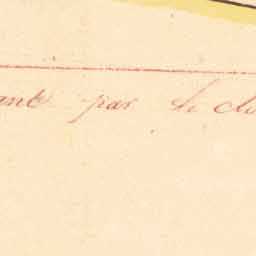 ant par le